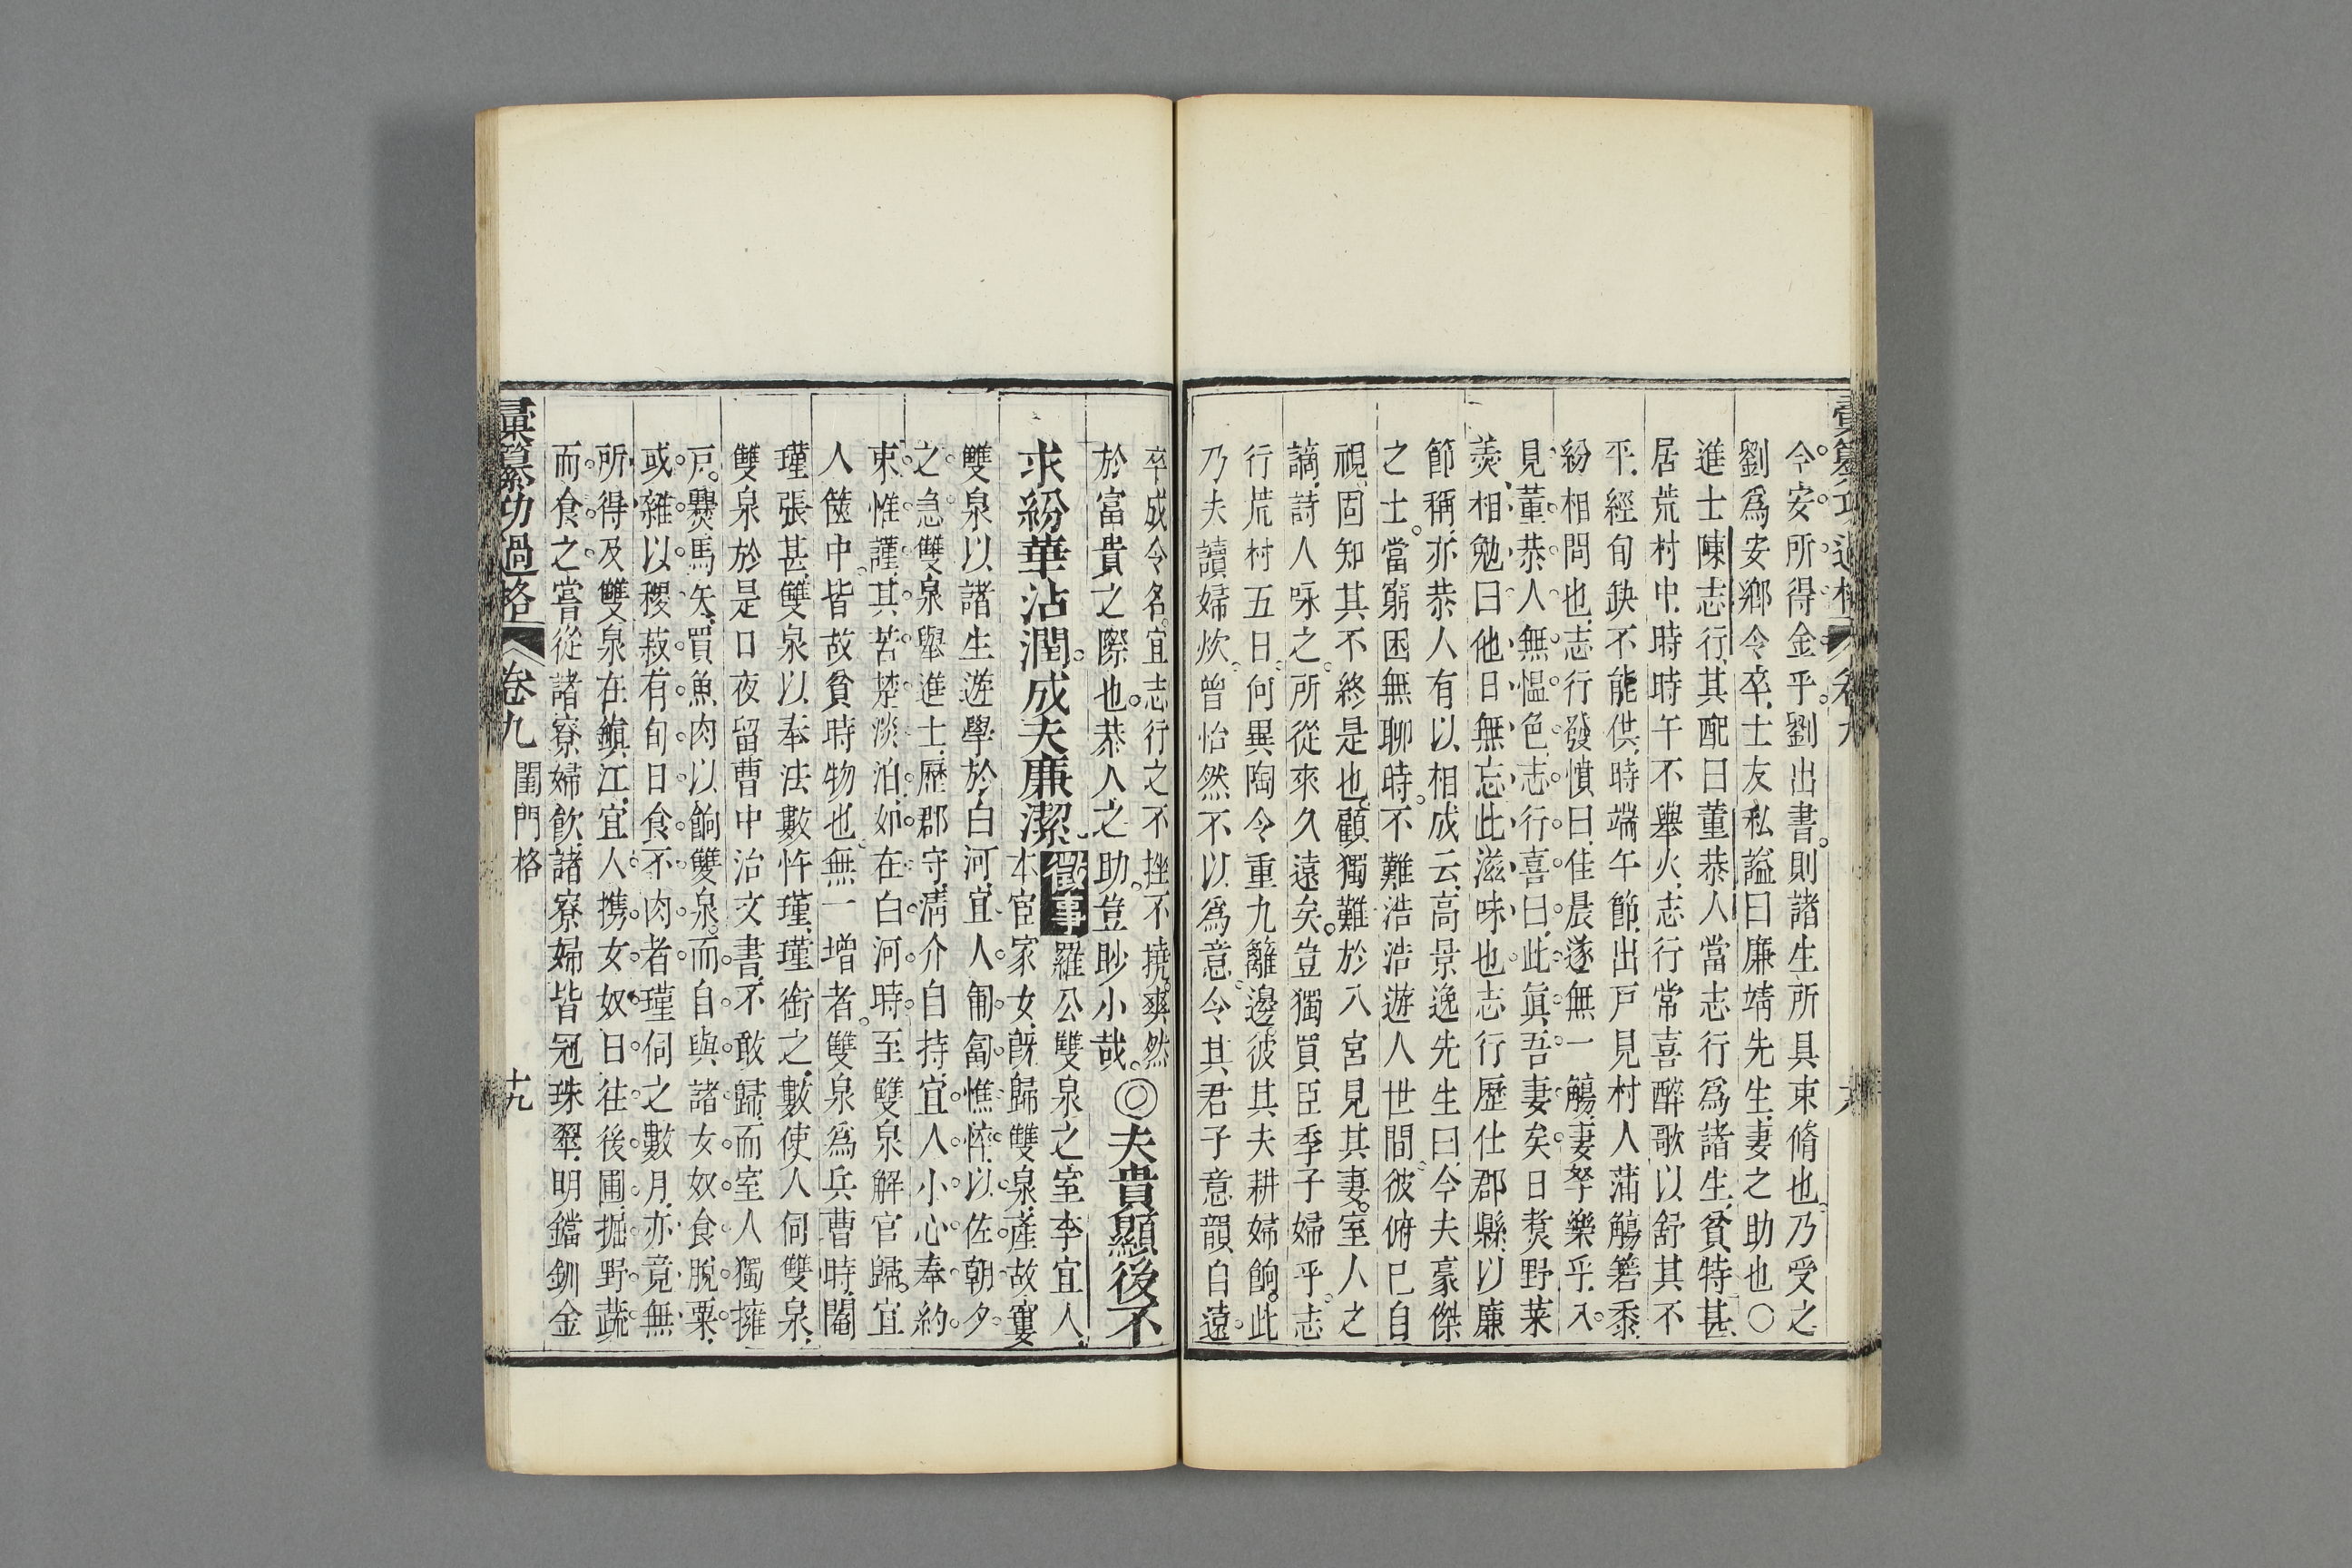 彙纂功過格 卷九
令安所得金乎劉出書則諸生所具束脩也乃受之
劉爲安鄉令卒士友私謚曰廉靖先生妻之助也〇
進士陳志行其配曰董恭人當志行爲諸生貧特甚
居荒村中時時午不舉火志行常喜醉歌以舒其不
平經旬缺不能供時端午節出戸見村人蒲觴箬黍
紛相問也志行發憤曰佳晨遂無一觴妻孥樂乎入
見董恭人無慍色志行喜曰此眞吾妻矣日煑野菜
羮相勉曰他日無忘此滋味也志行歷仕郡縣以廉
節稱亦恭人有以相成云高景逸先生曰今夫豪傑
之士當窮困無聊時不難浩浩遊人世間彼俯巳自
視固知其不終是也顧獨難於入宮見其妻室人之
謫詩人咏之所從來久遠矣豈獨買臣季子婦乎志
行荒村五日何異陶令重九籬邊彼其夫耕婦餉此
乃夫讀婦炊曾怡然不以爲意令其君子意韻自遠
卒成令名宜志行之不挫不撓爽然
於富貴之際也恭人之助豈眇小哉◎夫貴顯後不
求紛華沾潤成夫廉潔 徵事 羅公雙泉之室李宜人
本宦家女旣歸雙泉產故寠
雙泉以諸生遊學於白河宜人匍匐憔悴以佐朝夕
之急雙泉舉進士歷郡守淸介自持宜人小心奉約
束惟謹其苦楚淡泊如在白河時至雙泉解官歸宜
人篋中皆故貧時物也無一增者雙泉爲兵曹時閹
瑾張甚雙泉以奉法數忤瑾瑾銜之數使人伺雙泉
雙泉於是日夜留曹中治文書不敢歸而室人獨擁
戸爨馬矢買魚肉以餉雙泉而自與諸女奴食脫粟
或雜以稷菽有旬日食不肉者瑾伺之數月亦竟無
所得及雙泉在鎭江宜人携女奴日往後圃掘野蔬
而食之嘗從諸寮婦飮諸寮婦皆冠珠翠明鐺釧金
彙纂功過格 卷九 閨門格 十九